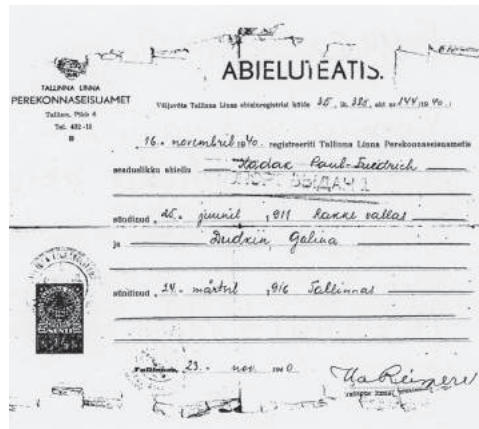 ABIELUTEATIS.
TALLINNA LINNA
PEREKONNASEISUAMET
Tallinn, Pikk 4
Tel. 482-11
Väljavõte Tallinna Linna abieluregistri köide 35, lk. 385, akt nr 144/1940. a
"16." novembril 1940. registreeriti Tallinna Linna Perekonnaseisuametis
seaduslikku abiellu Kadak Paul-Friedrich
sündinud "25." juunil 1911 Rakke vallas
ja Dudkin, Galina
sündinud "24." märtsil 1916 Tallinnas
Tallinnas, 23. nov. 1940.